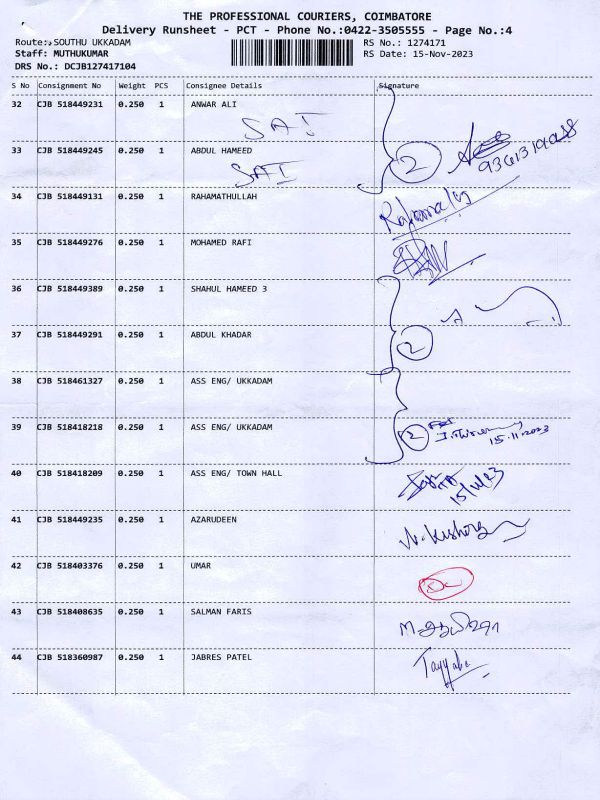 THE PROFESSIONAL COURIERS, COIMBATORE
Delivery Runsheet - PCT - Phone No.:0422-3505555 - Page No.:4
Route:: SOUTHU UKKADAM RS No.: 1274171
Staff: MUTHUKUMAR RS Date: 15-Nov-2023
DRS No.: DCJB127417104
S No Consignment No Weight PCS Consignee Details Signature
32 CJB 518449231 0.250 1 ANWAR ALI
SAI
33 CJB 518449245 0.250 1 ABDUL HAMEED
SAI
2
34 CJB 518449131 0.250 1 RAHAMATHULLAH
35 CJB 518449276 0.250 1 MOHAMED RAFI
36 CJB 518449389 0.250 1 SHAHUL HAMEED 3
37 CJB 518449291 0.250 1 ABDUL KHADAR
2
38 CJB 518461327 0.250 1 ASS ENG/ UKKADAM
39 CJB 518418218 0.250 1 ASS ENG/ UKKADAM
2
15.11.2023
40 CJB 518418209 0.250 1 ASS ENG/ TOWN HALL
15/11/23
41 CJB 518449235 0.250 1 AZARUDEEN
42 CJB 518403376 0.250 1 UMAR
43 CJB 518408635 0.250 1 SALMAN FARIS
44 CJB 518360987 0.250 1 JABRES PATEL